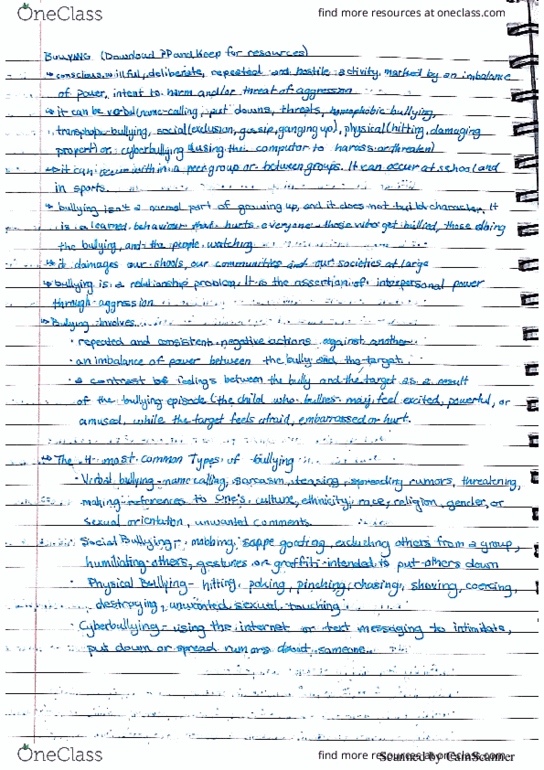 OneClass
find more resources at oneclass.com
BULLYING (Download PP and keep for resources)
↳ conscious, willful, deliberate, repeated and hostile activity, marked by an imbalance
of power, intent to harm and/or threat of aggression
↳ it can be verbal (name-calling, put downs, threats, homophobic bullying,
transphobic-bullying, social (exclusion, gossip, ganging up), physical (hitting, damaging
property) or cyberbullying (using the computer to harass or threaten)
↳ it can occur within a peer group or between groups. It can occur at school and
in sports
↳ bullying isn't a normal part of growing up, and it does not build character. It
is a learned behaviour that hurts everyone - those who get bullied, those doing
the bullying, and the people watching
↳ it damages our shools, our communities and our societies at large
↳ bullying is a relationship problem. It is the assertion of interpersonal power
through aggression
↳ Bullying involves
· repeated and consistent negative actions against another
· an imbalance of power between the bully and the target
· a contrast of feelings between the bully and the target as a result
of the bullying episode (the child who bullies may feel excited, powerful, or
amused, while the target feels afraid, embarrassed or hurt.
↳ The 4 most common Types of bullying
· Verbal bullying - name calling, sarcasm, teasing, spreading rumors, threatening,
making references to one's culture, ethnicity, race, religion, gender, or
sexual orientation, unwanted comments
· Social Bullying - mobbing, scape goating, excluding others from a group,
humiliating others, gestures or graffiti intended to put others down
· Physical Bullying - hitting, poking, pinching, chasing, shoving, coercing,
destroying, unwanted sexual touching
· Cyberbullying - using the internet or text messaging to intimidate,
put down or spread rumors about someone
OneClass
find more resources at oneclass.com
Scanned by CamScanner